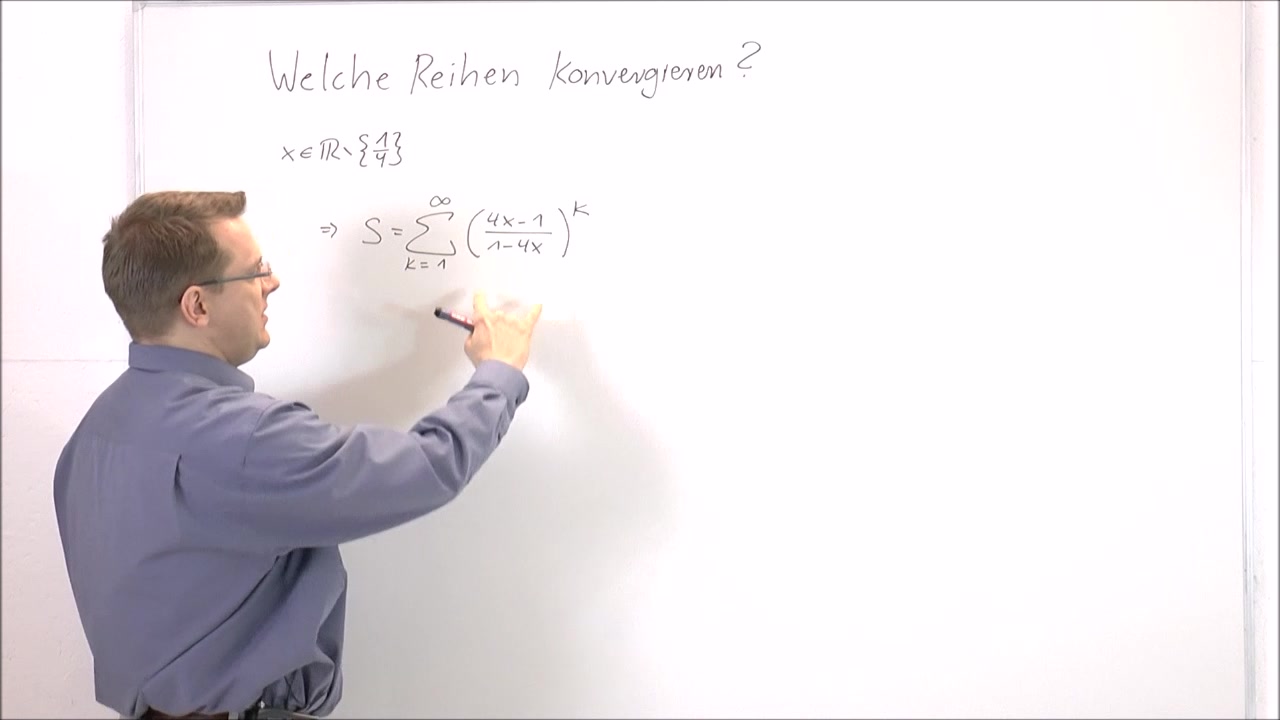 Welche Reihen konvergieren?
x ∈ ℝ \ {1/4}
⇒ S = ∑_{k=1}^{∞} ((4x-1)/(1-4x))^k